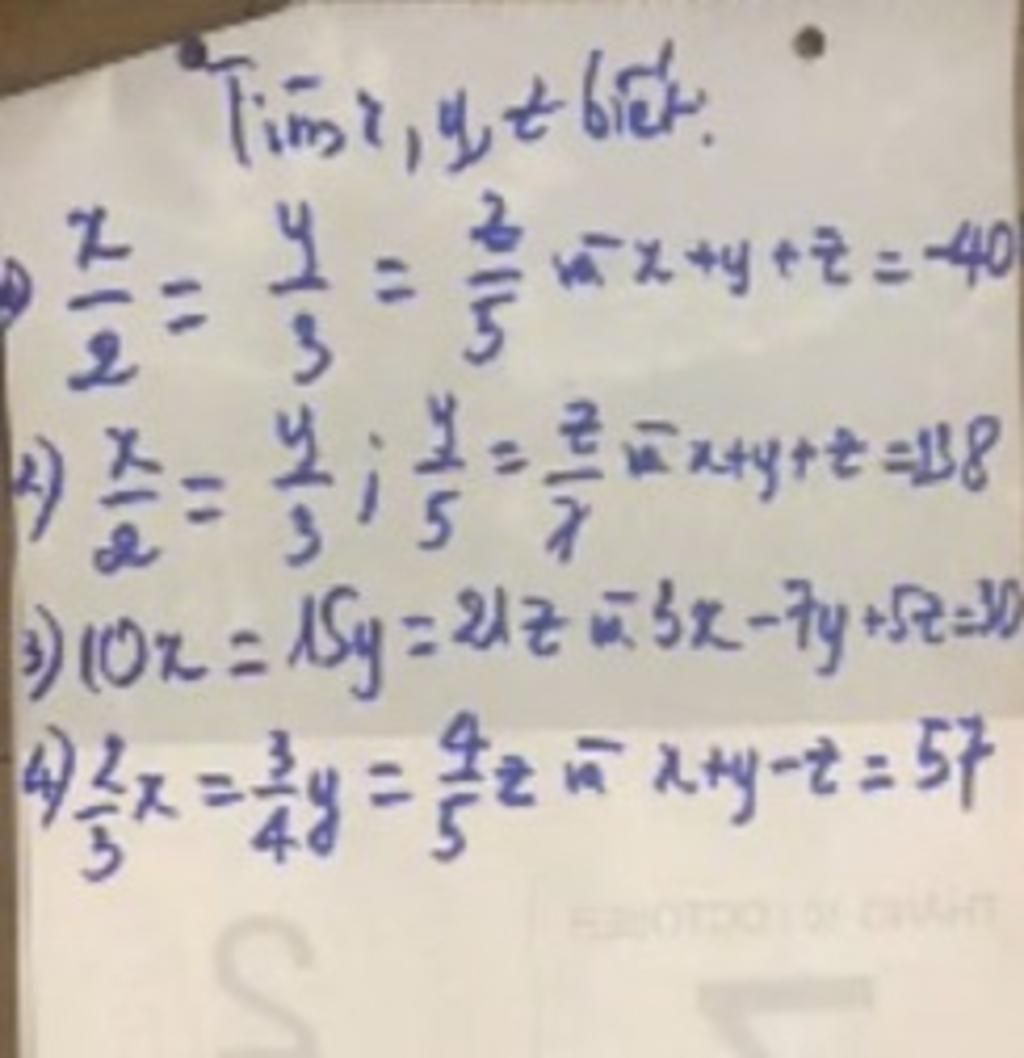 Tìm x, y, z biết.
1) x/2 = y/3 = z/5 và x + y + z = -40
2) x/2 = y/3 ; y/5 = z/7 và x + y + z = 138
3) 10x = 15y = 21z và 3x - 7y + 5z = 30
4) 2/3 x = 3/4 y = 4/5 z và x + y - z = 57
THÁNG 10 OCTOBER
2 7